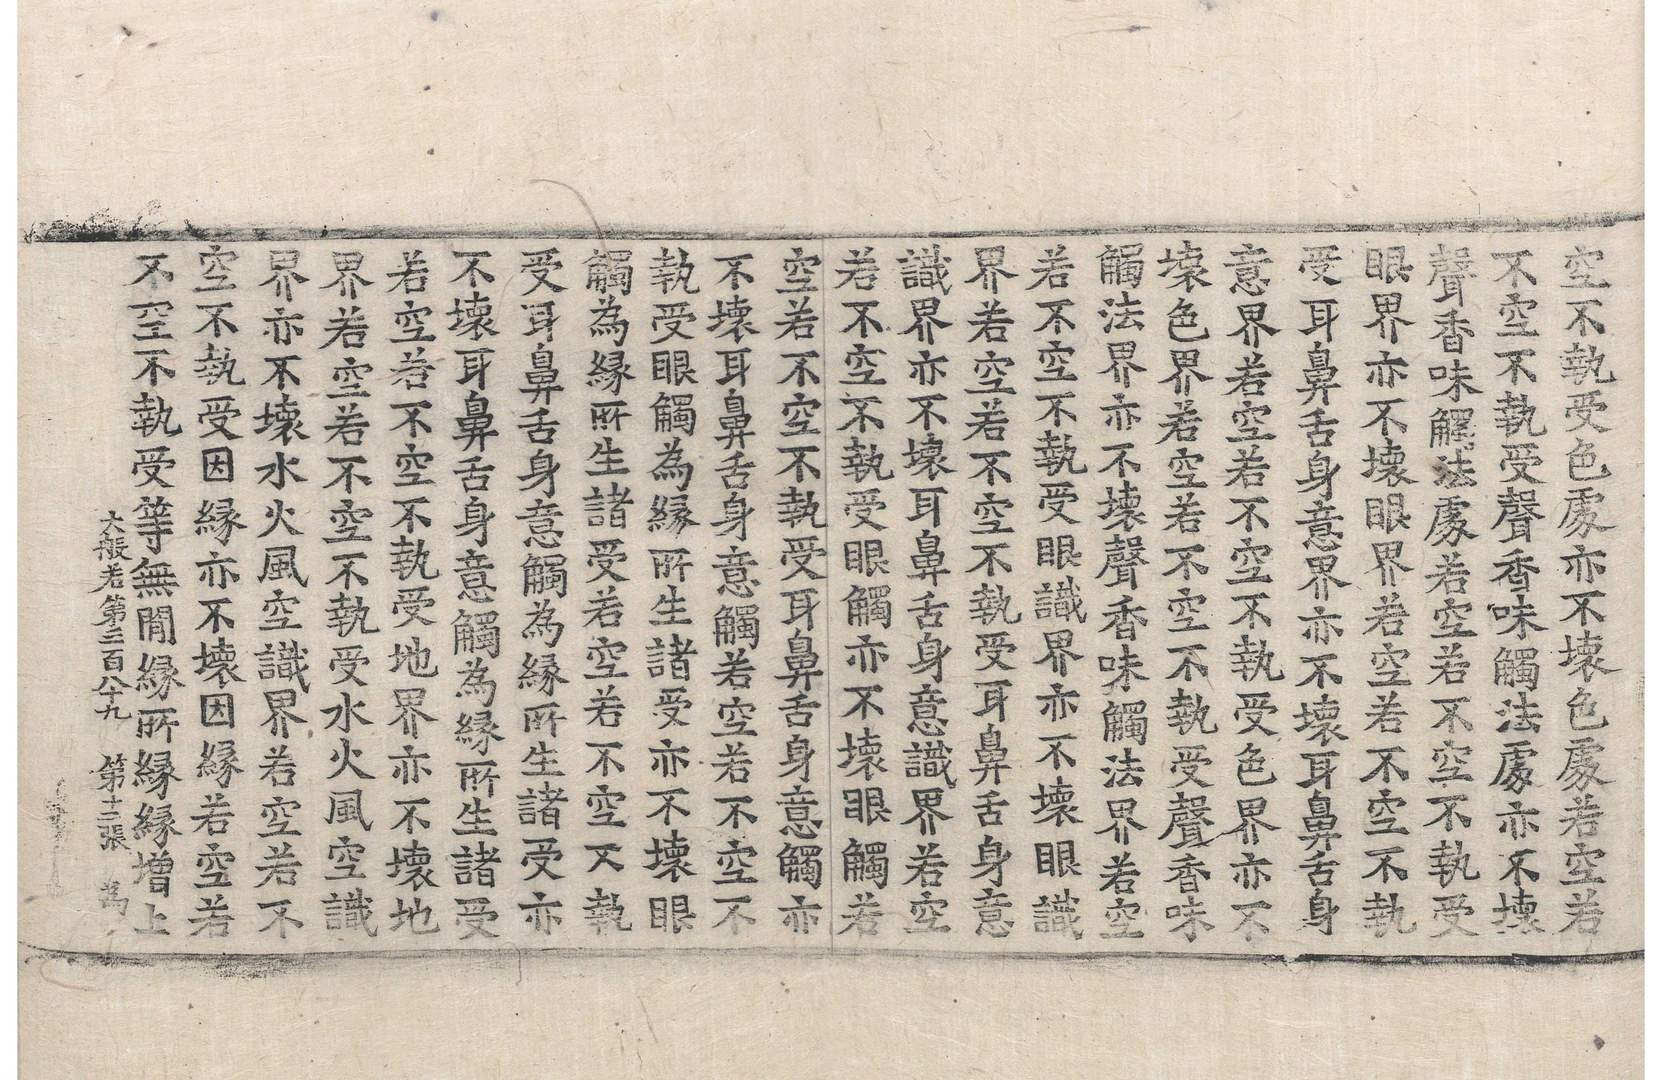 空不執受色處亦不壞色處若空若
不空不執受聲香味觸法處亦不壞
聲香味觸法處若空若不空不執受
眼界亦不壞眼界若空若不空不執
受耳鼻舌身意界亦不壞耳鼻舌身
意界若空若不空不執受色界亦不
壞色界若空若不空不執受聲香味
觸法界亦不壞聲香味觸法界若空
若不空不執受眼識界亦不壞眼識
界若空若不空不執受耳鼻舌身意
識界亦不壞耳鼻舌身意識界若空
若不空不執受眼觸亦不壞眼觸若
空若不空不執受耳鼻舌身意觸亦
不壞耳鼻舌身意觸若空若不空不
執受眼觸為縁所生諸受亦不壞眼
觸為縁所生諸受若空若不空不執
受耳鼻舌身意觸為縁所生諸受亦
不壞耳鼻舌身意觸為縁所生諸受
若空若不空不執受地界亦不壞地
界若空若不空不執受水火風空識
界亦不壞水火風空識界若空若不
空不執受因縁亦不壞因縁若空若
不空不執受等無閒縁所縁縁增上
大般若第三百八十九 第十三張 為